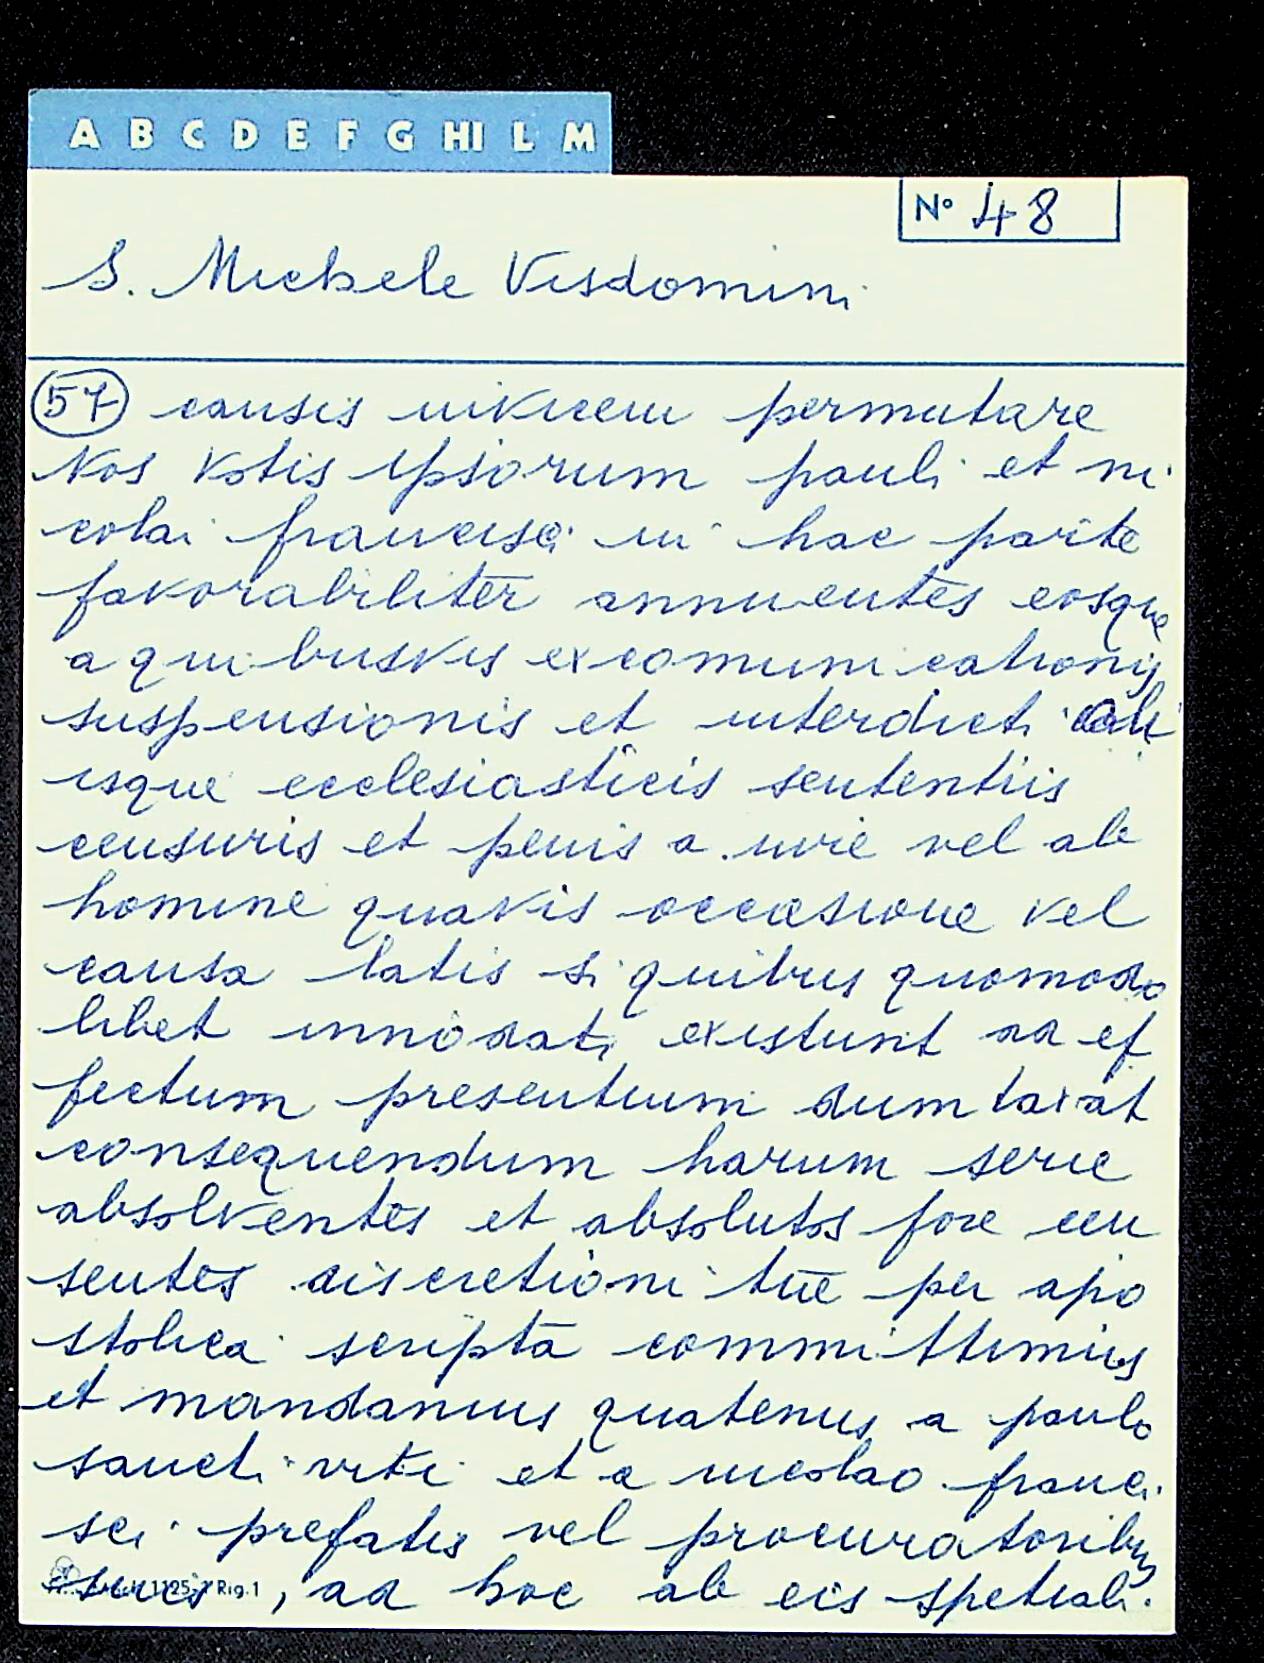 A B C D E F G HI L M
N° 48
S. Michele Visdomini
57 causis invicem permutare
Nos votis ipsorum pauli et ni
colai francisci in hac parte
favorabiliter annuentes eosque
a quibusvis excomunicationis
suspensionis et interdicti ali
isque ecclesiasticis sententiis
censuris et penis a iure vel ab
homine quavis occasione vel
causa latis si quibus quomodo
libet innodati existunt ad ef
fectum presentium dum taxat
consequendum harum serie
absolventes et absolutos fore cen
sentes discretioni tue per apo
stolica scripta committimus
et mandamus quatenus a paulo
sancti viti et a nicolao franci
sci prefatis vel procuratoribus
suis, ad hoc ab eis spetiali
Rig.1